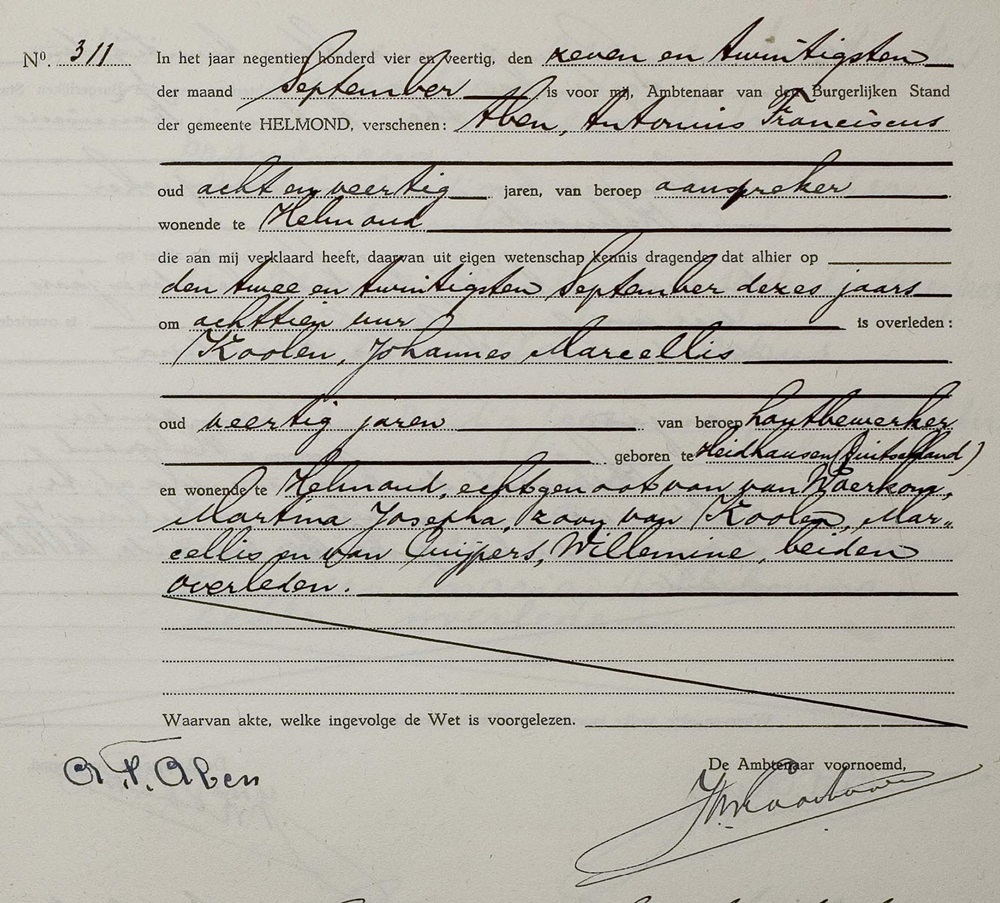 Nº. 311 In het jaar negentien honderd vier en veertig, den zeven en twintigsten
der maand September is voor mij, Ambtenaar van den Burgerlijken Stand
der gemeente HELMOND, verschenen: Aben, Antonius Franciscus
oud acht en veertig jaren, van beroep aanspreker
wonende te Helmond
die aan mij verklaard heeft, daarvan uit eigen wetenschap kennis dragende, dat alhier op
den twee en twintigsten September dezes jaars
om achttien uur is overleden:
Koolen, Johannes Marcellis
oud veertig jaren van beroep houtbewerker
geboren te Heidhausen (Duitschland)
en wonende te Helmond, echtgenoot van van Woerkom,
Martina Josepha, zoon van Koolen, Mar„
cellis en van Cuijpers, Willemine, beiden
overleden.
Waarvan akte, welke ingevolge de Wet is voorgelezen.
De Ambtenaar voornoemd,
A. F. Aben